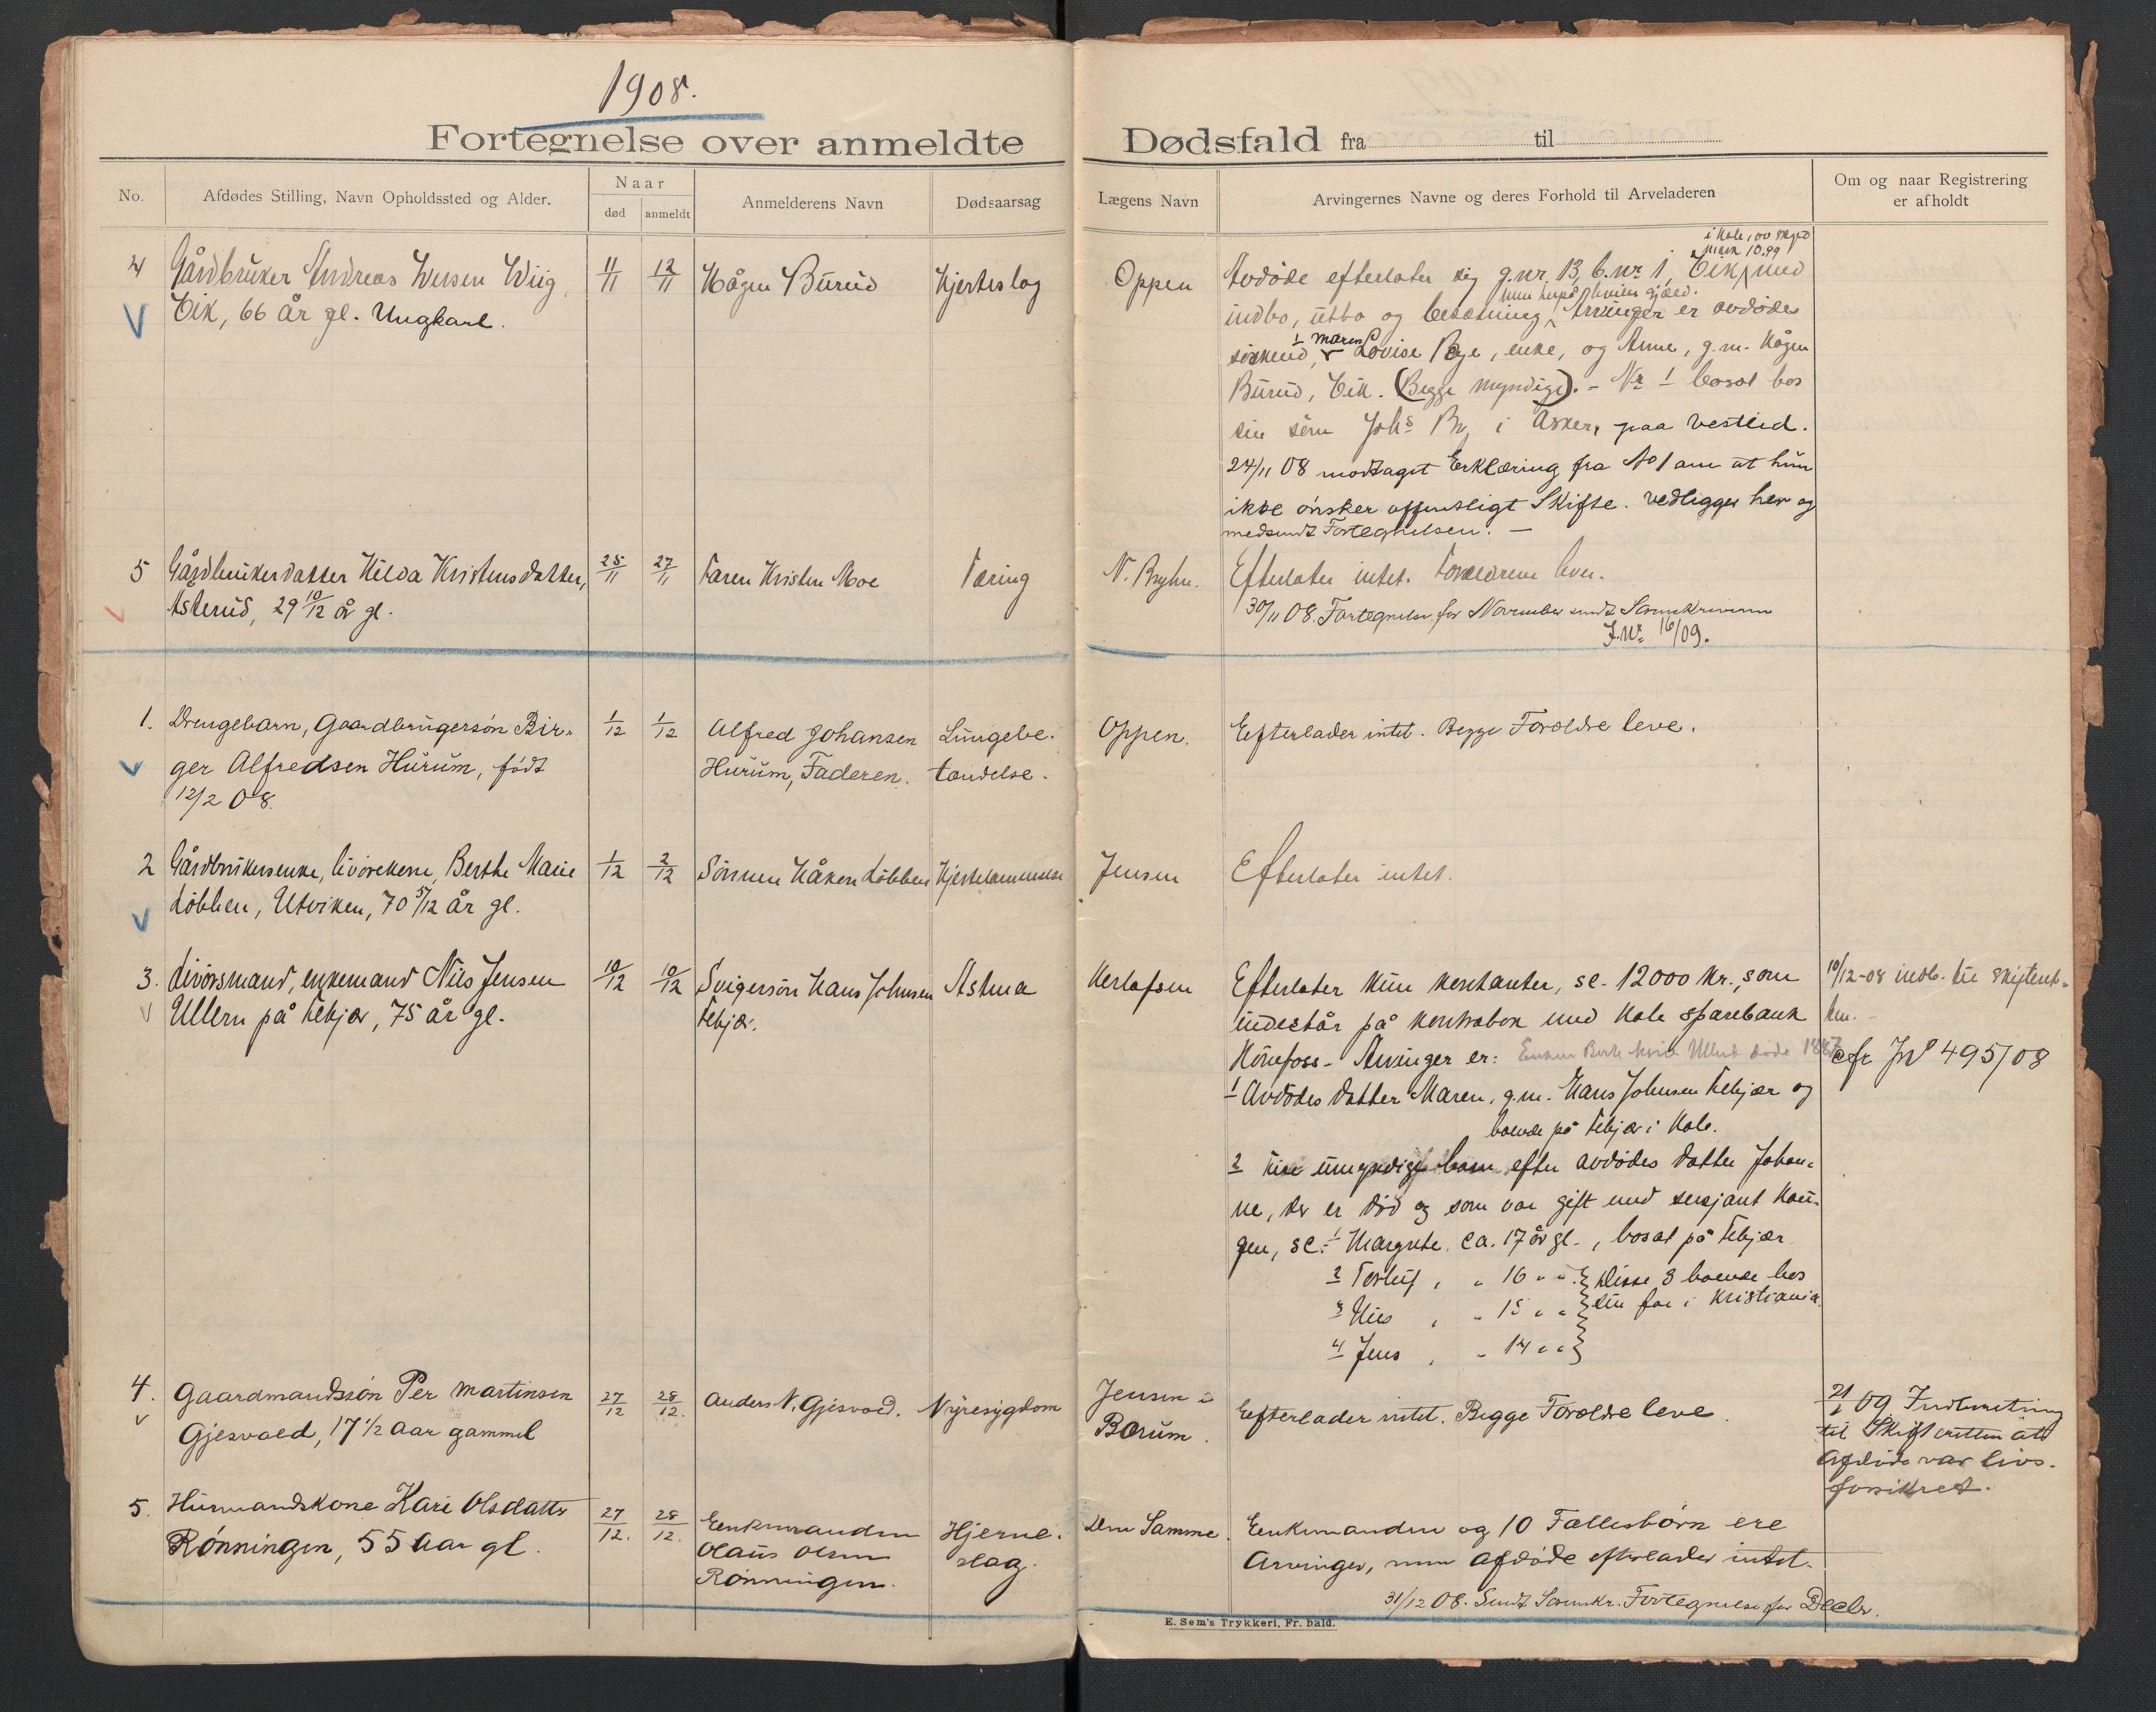 1908.
Fortegnelse over anmeldte Dødsfald fra til
No.
Afdødes Stilling, Navn Opholdssted og Alder.
Naar
død
anmeldt
Anmelderens Navn
Dødsaarsag
Lægens Navn
Arvingernes Navne og deres Forhold til Arveladeren
Om og naar Registrering
er afholdt
4
Gårdbruker Andreas Iversen Wiig,
Eik, 66 år gl. Ungkarl.
11/11
12/11
Hågen Burud
Hjerteslag
Oppen
i Hole, av skyld
mark 10.99
Avdøde efterlater sig g.nr. 13, b.nr. 1, Eik, med
gjæld.
indbo, utbo og besætning, Arvinger er avdødes
søskend, 1 Maren Lovise Bye, enke, og Anne, g.m. Hågen
Burud, Eik. (Begge myndige). - Nr 1 bosat hos
sin søn Johs By i Asker, paa Vestlid.
24/11 08 modtaget Erklæring fra No 1 om at hun
ikke ønsker offentligt Skifte. Vedligger her og
medsendt Fortegnelsen. -
5
Gårdbrukerdatter Hilda Kristensdatter,
Asterud, 29 10/12 år gl.
25/11
27/11
Faren Kristen Moe
Tæring
N. Bryhn.
Efterlater intet. Forældrene lever.
30/11 08. Fortegnelse for November sendt Sorenskriveren
J.Nr 16/09.
1.
Drengebarn, Gaardbrugersøn Bir-
ger Alfredsen Hurum, født
12/2 08.
1/12
1/12
Alfred Johansen
Hurum, Faderen.
Lungebe-
tændelse.
Oppen.
Efterlader intet. Begge Forældre leve.
2
Gårdbrukerenke, livørekone, Berthe Marie
Løbben, Utviken, 70 5/12 år gl.
1/12
2/12
Sønnen Håken Løbben
Hjertelammelse
Jensen
Efterlater intet.
3.
Livørsmand, enkemand Nils Jensen
Ullern på Febjær, 75 år gl.
10/12
10/12
Svigersøn Hans Johnsen
Febjær.
Astma
Efterlater kun kontanter, sc. 12000 kr., som
indestår på kontrabok med Hole sparebank
Hønefoss - Arvinger er: Enken Berte Marie Ullern døde 1887
1 Avdødes datter Maren, g.m. Hans Johnsen Febjær og
boende på Febjær i Hole.
2 umyndige barn efter avdødes datter Johan-
ne, der er død og som var gift med sersjant Hau-
gen, sc. 1 Margrete, ca. 17 år gl., bosat på Febjær
2 Torleif, " 16 " " Disse 3 boende hos
3 Nils, " 15 " " sin far i Kristiania
4 Jens, " 14 " "
10/12-08 indb. til skifteret-
ten. -
cfr JNo 495/08
4.
Gaardmandssøn Per Martinsen
Gjesvold, 17 1/2 Aar gammel
27/12
28/12.
Anders N. Gjesvold.
Nyresygdom
Jensen i
Bærum.
Efterlader intet. Begge Forældre leve.
21/1 09 Indberetning
til Skifteretten at
Afdøde var livs-
forsikret.
5.
Husmandskone Kari Olsdatter
Rønningen, 55 Aar gl.
27/12.
28/12.
Enkemanden
Olaus Olsen
Rønningen.
Hjerne-
slag.
Den Samme.
Enkemanden og 10 Fællesbørn ere
Arvinger, men Afdøde efterlader intet.
31/12 08. Sendt Sorenskr. Fortegnelse for Decbr.
E. Sem's Trykkeri, Fr.hald.